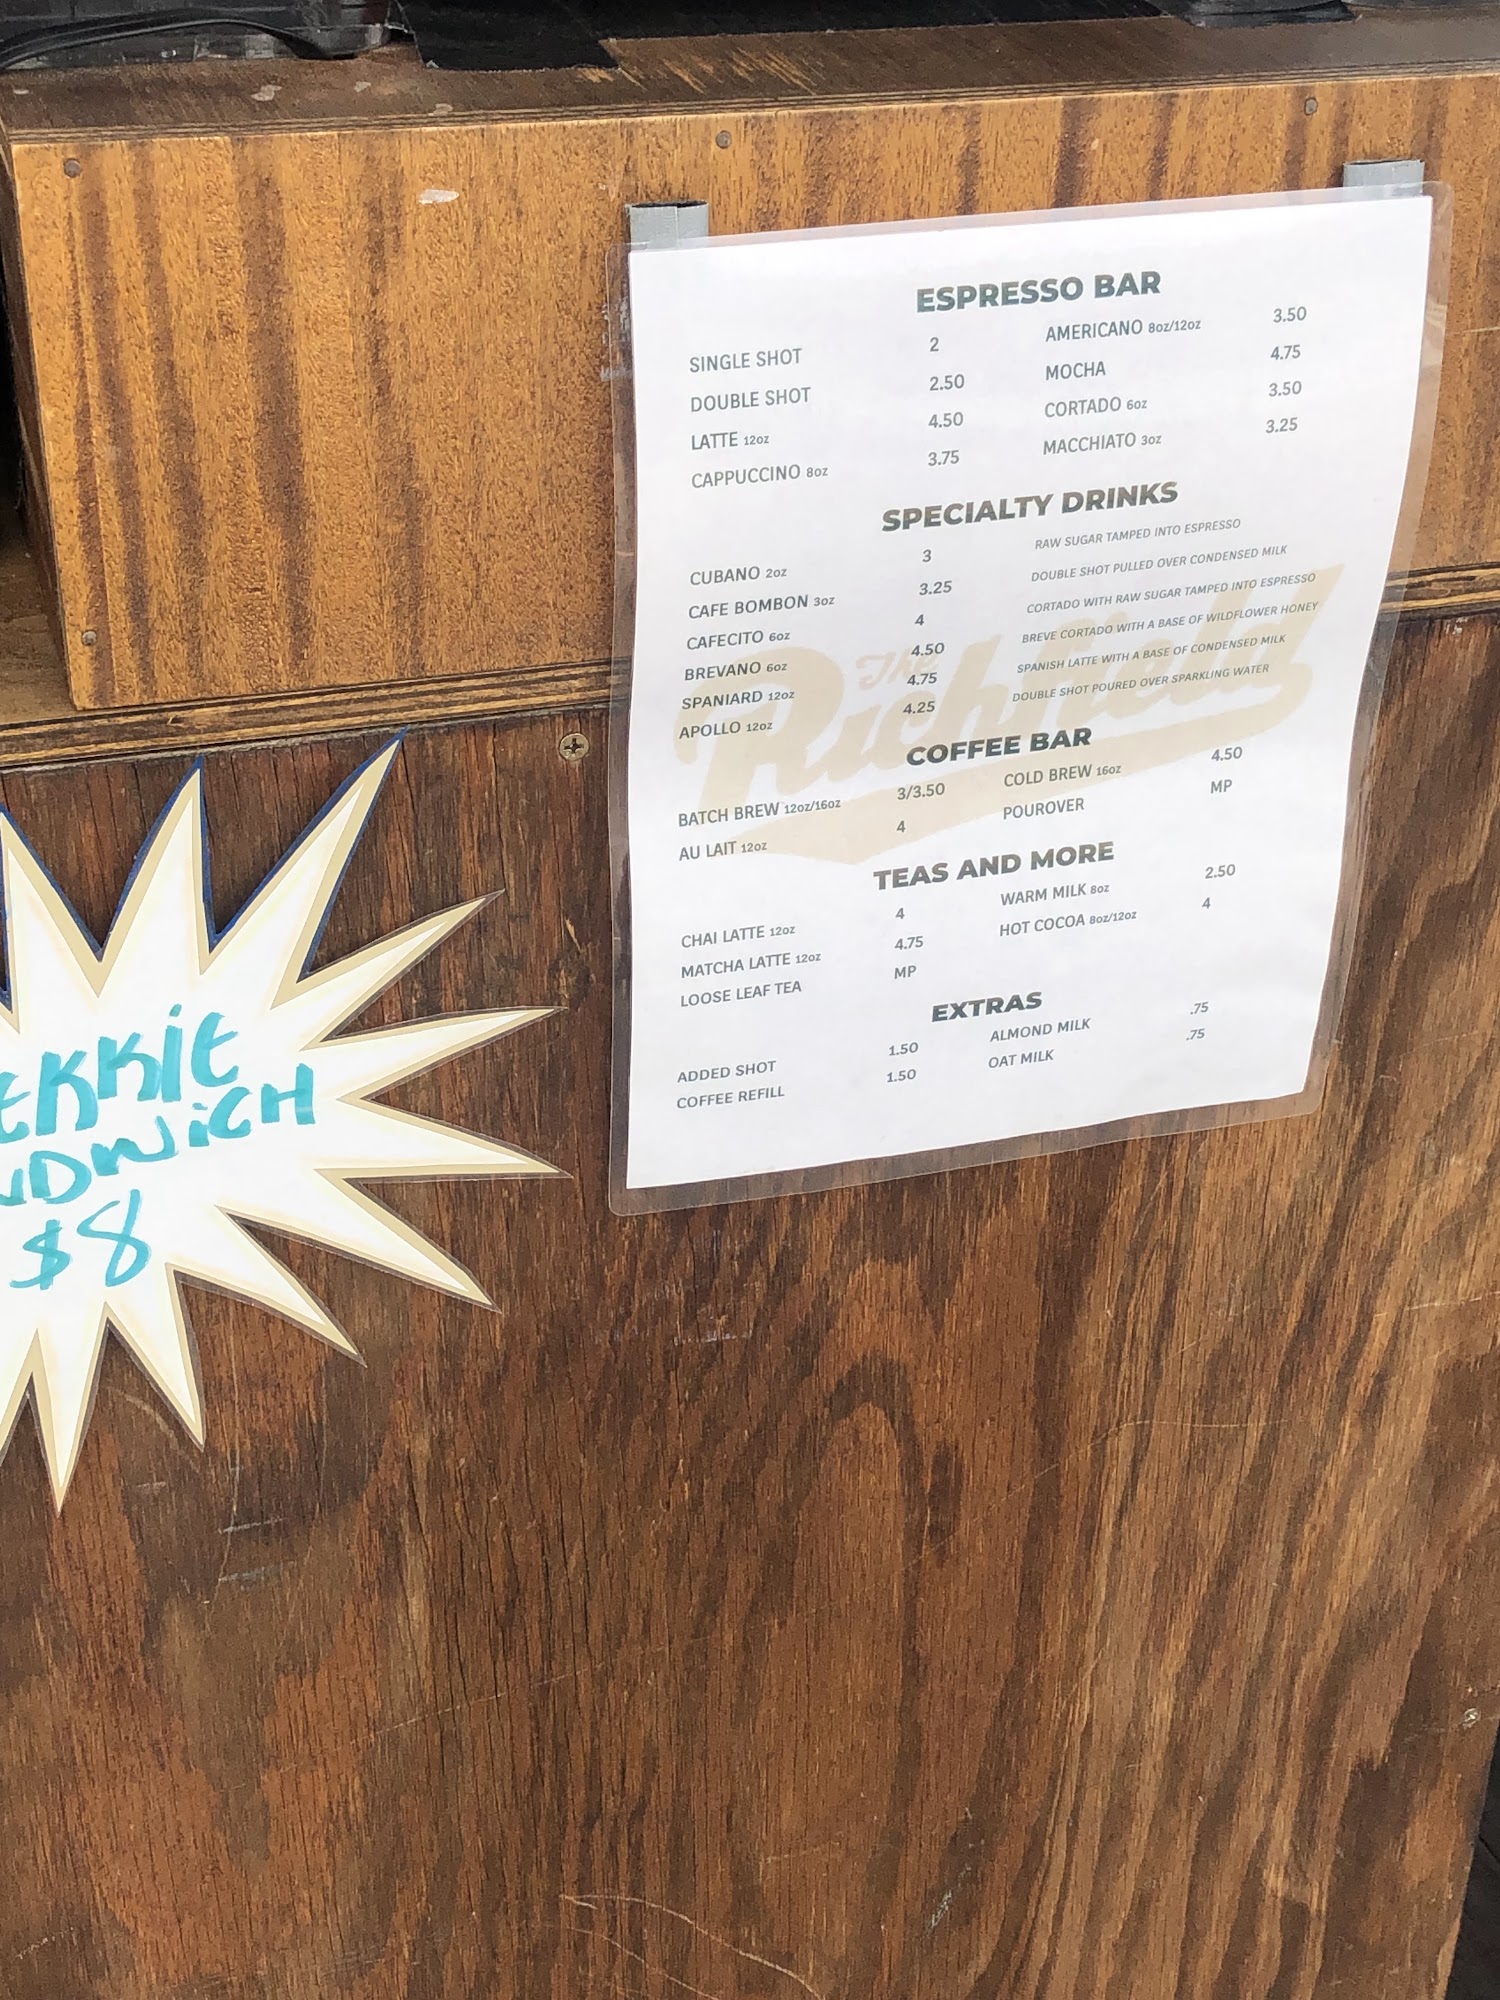 ESPRESSO BAR
SINGLE SHOT 2 AMERICANO 8oz/12oz 3.50
DOUBLE SHOT 2.50 MOCHA 4.75
LATTE 12oz 4.50 CORTADO 6oz 3.50
CAPPUCCINO 8oz 3.75 MACCHIATO 3oz 3.25
SPECIALTY DRINKS
CUBANO 2oz 3 RAW SUGAR TAMPED INTO ESPRESSO
CAFE BOMBON 3oz 3.25 DOUBLE SHOT PULLED OVER CONDENSED MILK
CAFECITO 6oz 4 CORTADO WITH RAW SUGAR TAMPED INTO ESPRESSO
BREVANO 6oz 4.50 BREVE CORTADO WITH A BASE OF WILDFLOWER HONEY
SPANIARD 12oz 4.75 SPANISH LATTE WITH A BASE OF CONDENSED MILK
APOLLO 12oz 4.25 DOUBLE SHOT POURED OVER SPARKLING WATER
The
Richfield
COFFEE BAR
BATCH BREW 12oz/16oz 3/3.50 COLD BREW 16oz 4.50
AU LAIT 12oz 4 POUROVER MP
TEAS AND MORE
CHAI LATTE 12oz 4 WARM MILK 8oz 2.50
MATCHA LATTE 12oz 4.75 HOT COCOA 8oz/12oz 4
LOOSE LEAF TEA MP
EXTRAS
ADDED SHOT 1.50 ALMOND MILK .75
COFFEE REFILL 1.50 OAT MILK .75
$8